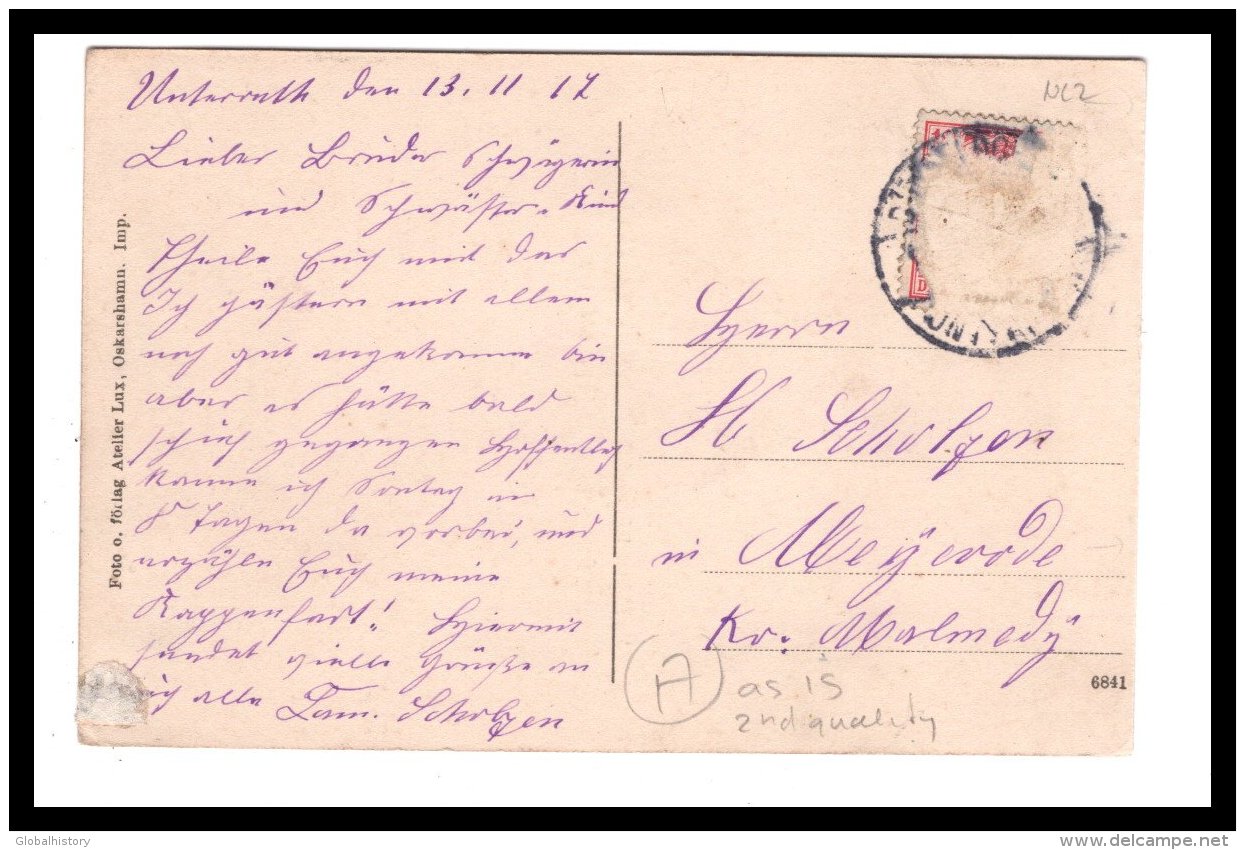 Unterrath den 13. 11 17
Lieber Bruder Schwägerin
und Schwäster. Kind
Theile Euch mit das
Ich gästern mit allem
noch gut angekomme bin
aber es hätte bald
schief gegangen Hoffentlich
komme ich Sontag in
8 Tagen da vorbei, und
erzähle Euch meine
Kappenfart! Hiermit
sendet vielle Grüße an
Euch alle Fam. Scholzen
Foto o. förlag Atelier Lux, Oskarshamn. Imp.
NL2
Herrn
H Scholzen
in Meyerode
Kr. Malmedy
6841
A as is
2nd quality
Globalhistory
delcampe.net